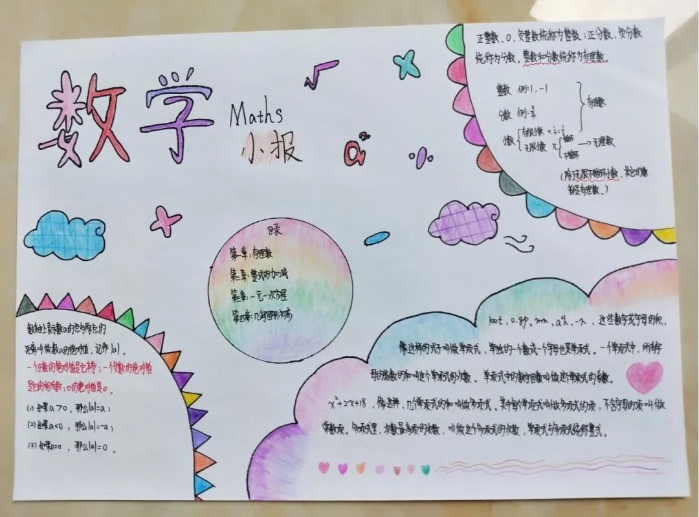 数学
Maths
小报
正整数、0、负整数统称为整数；正分数、负分数
统称为分数。整数和分数统称为有理数。
整数 例:1,-1
分数 例:
有理数
小数
无理数
目录
第一章：有理数
第二章：整式的加减
第三章：一元一次方程
第四章：几何图形初步
数轴上表示数a的点与原点的
距离叫做数a的绝对值，记作|a|。
一个正数的绝对值是它本身；一个负数的绝对值
是它的相反数；0的绝对值是0。
(1)如果a>0，那么|a|=a；
(2)如果a<0，那么|a|=-a；
(3)如果a=0，那么|a|=0。
100t，0.8p，这些数字或字母的积，
像这样的式子叫做单项式，单独的一个数或一个字母也是单项式。一个单项式中，所有字
母的指数的和叫这个单项式的次数。单项式中的数字因数叫做这个单项式的系数。
x²+2x+18，像这样，几个单项式的和叫做多项式。其中每个单项式叫做多项式的项，不含字母的项叫做
常数项。多项式里，次数最高项的次数，叫做这个多项式的次数，单项式与多项式统称整式。